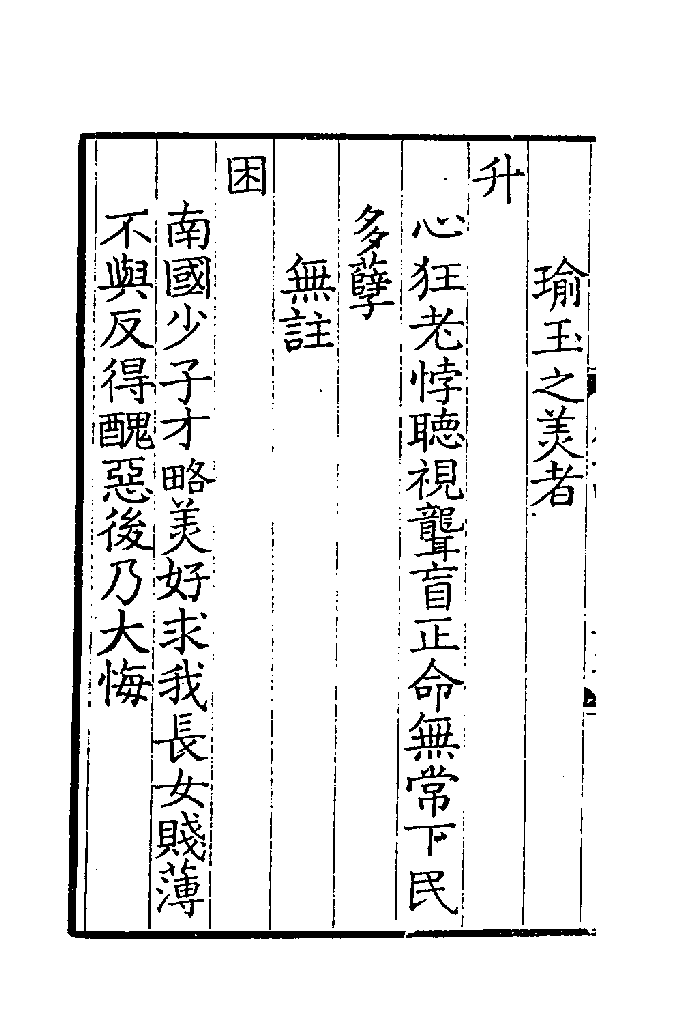 瑜玉之美者
升
心狂老悖聽視聾盲正命無常下民
多孽
無註
困
南國少子才略美好求我長女賤薄
不與反得醜惡後乃大悔